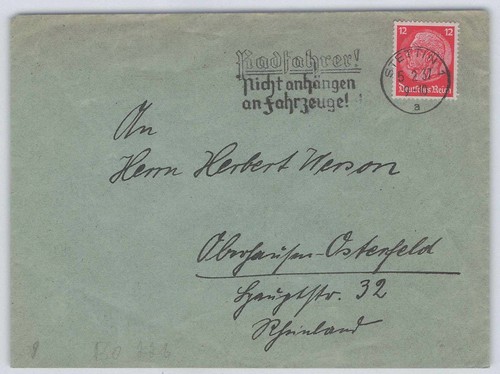 Radfahrer!
Nicht anhängen
an Fahrzeuge!
12 12
Deutsches Reich
STETTIN
2.37
a
An
Herrn Herbert Werson
Oberhausen-Osterfeld
Hauptstr. 32
Rheinland